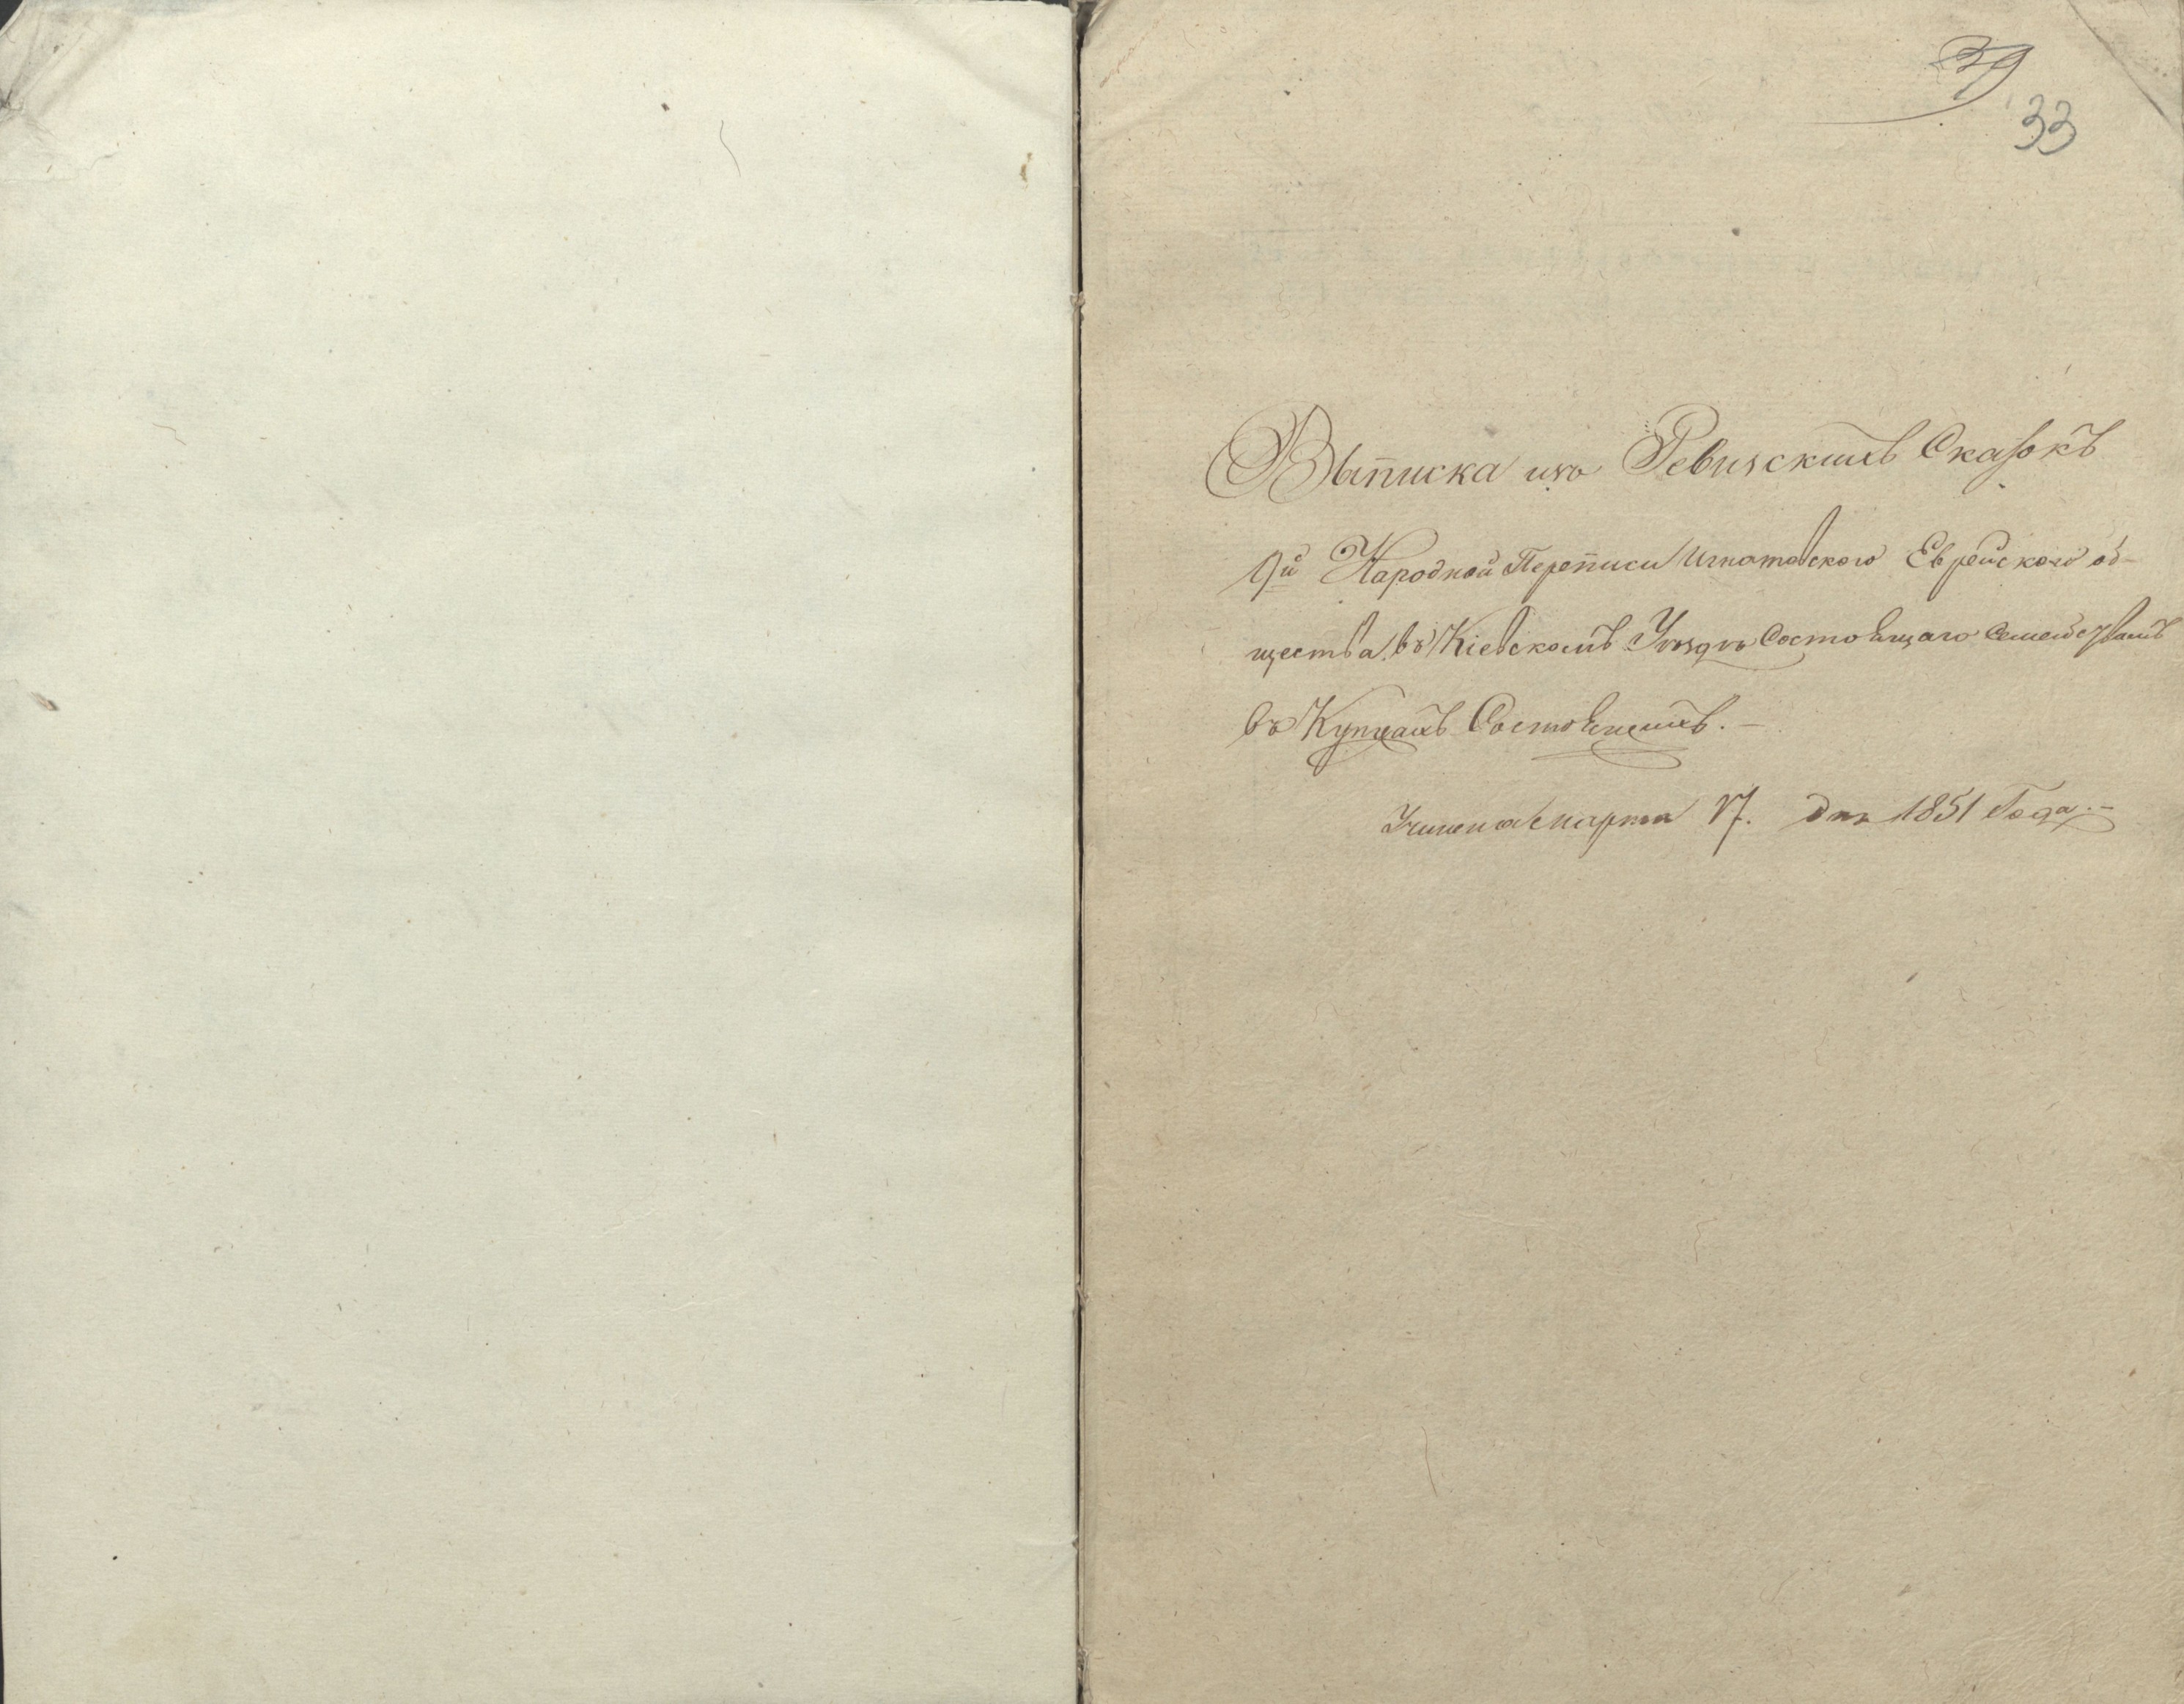 39
33
Выписка изъ Ревизскихъ Сказокъ
9й Народной Переписи Игнатовского Еврейского об-
щества, въ Кіевскомъ Уѣздѣ Состоящаго Семействамъ
въ Купцахъ Состоящимъ.-
Учинена Марта 17. дня 1851 Года.-